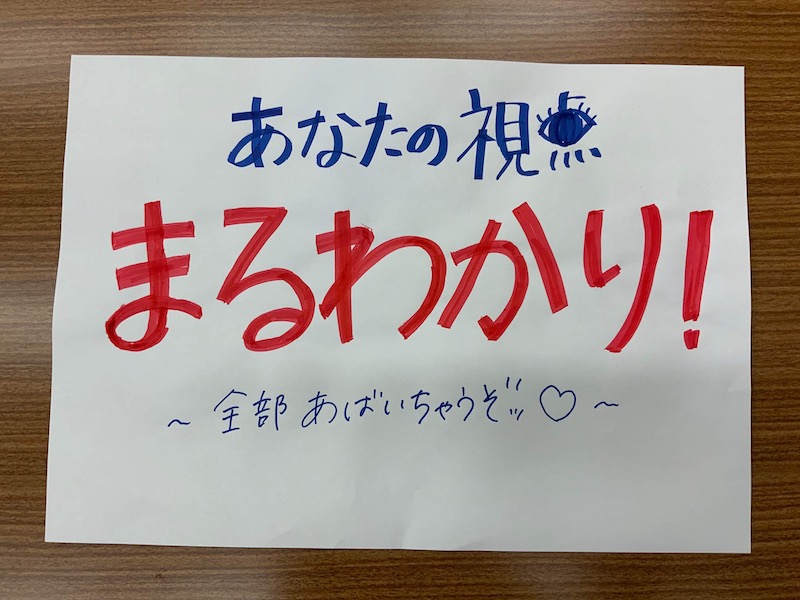 あなたの視点
まるわかり!
～全部あばいちゃうぞッ♡～